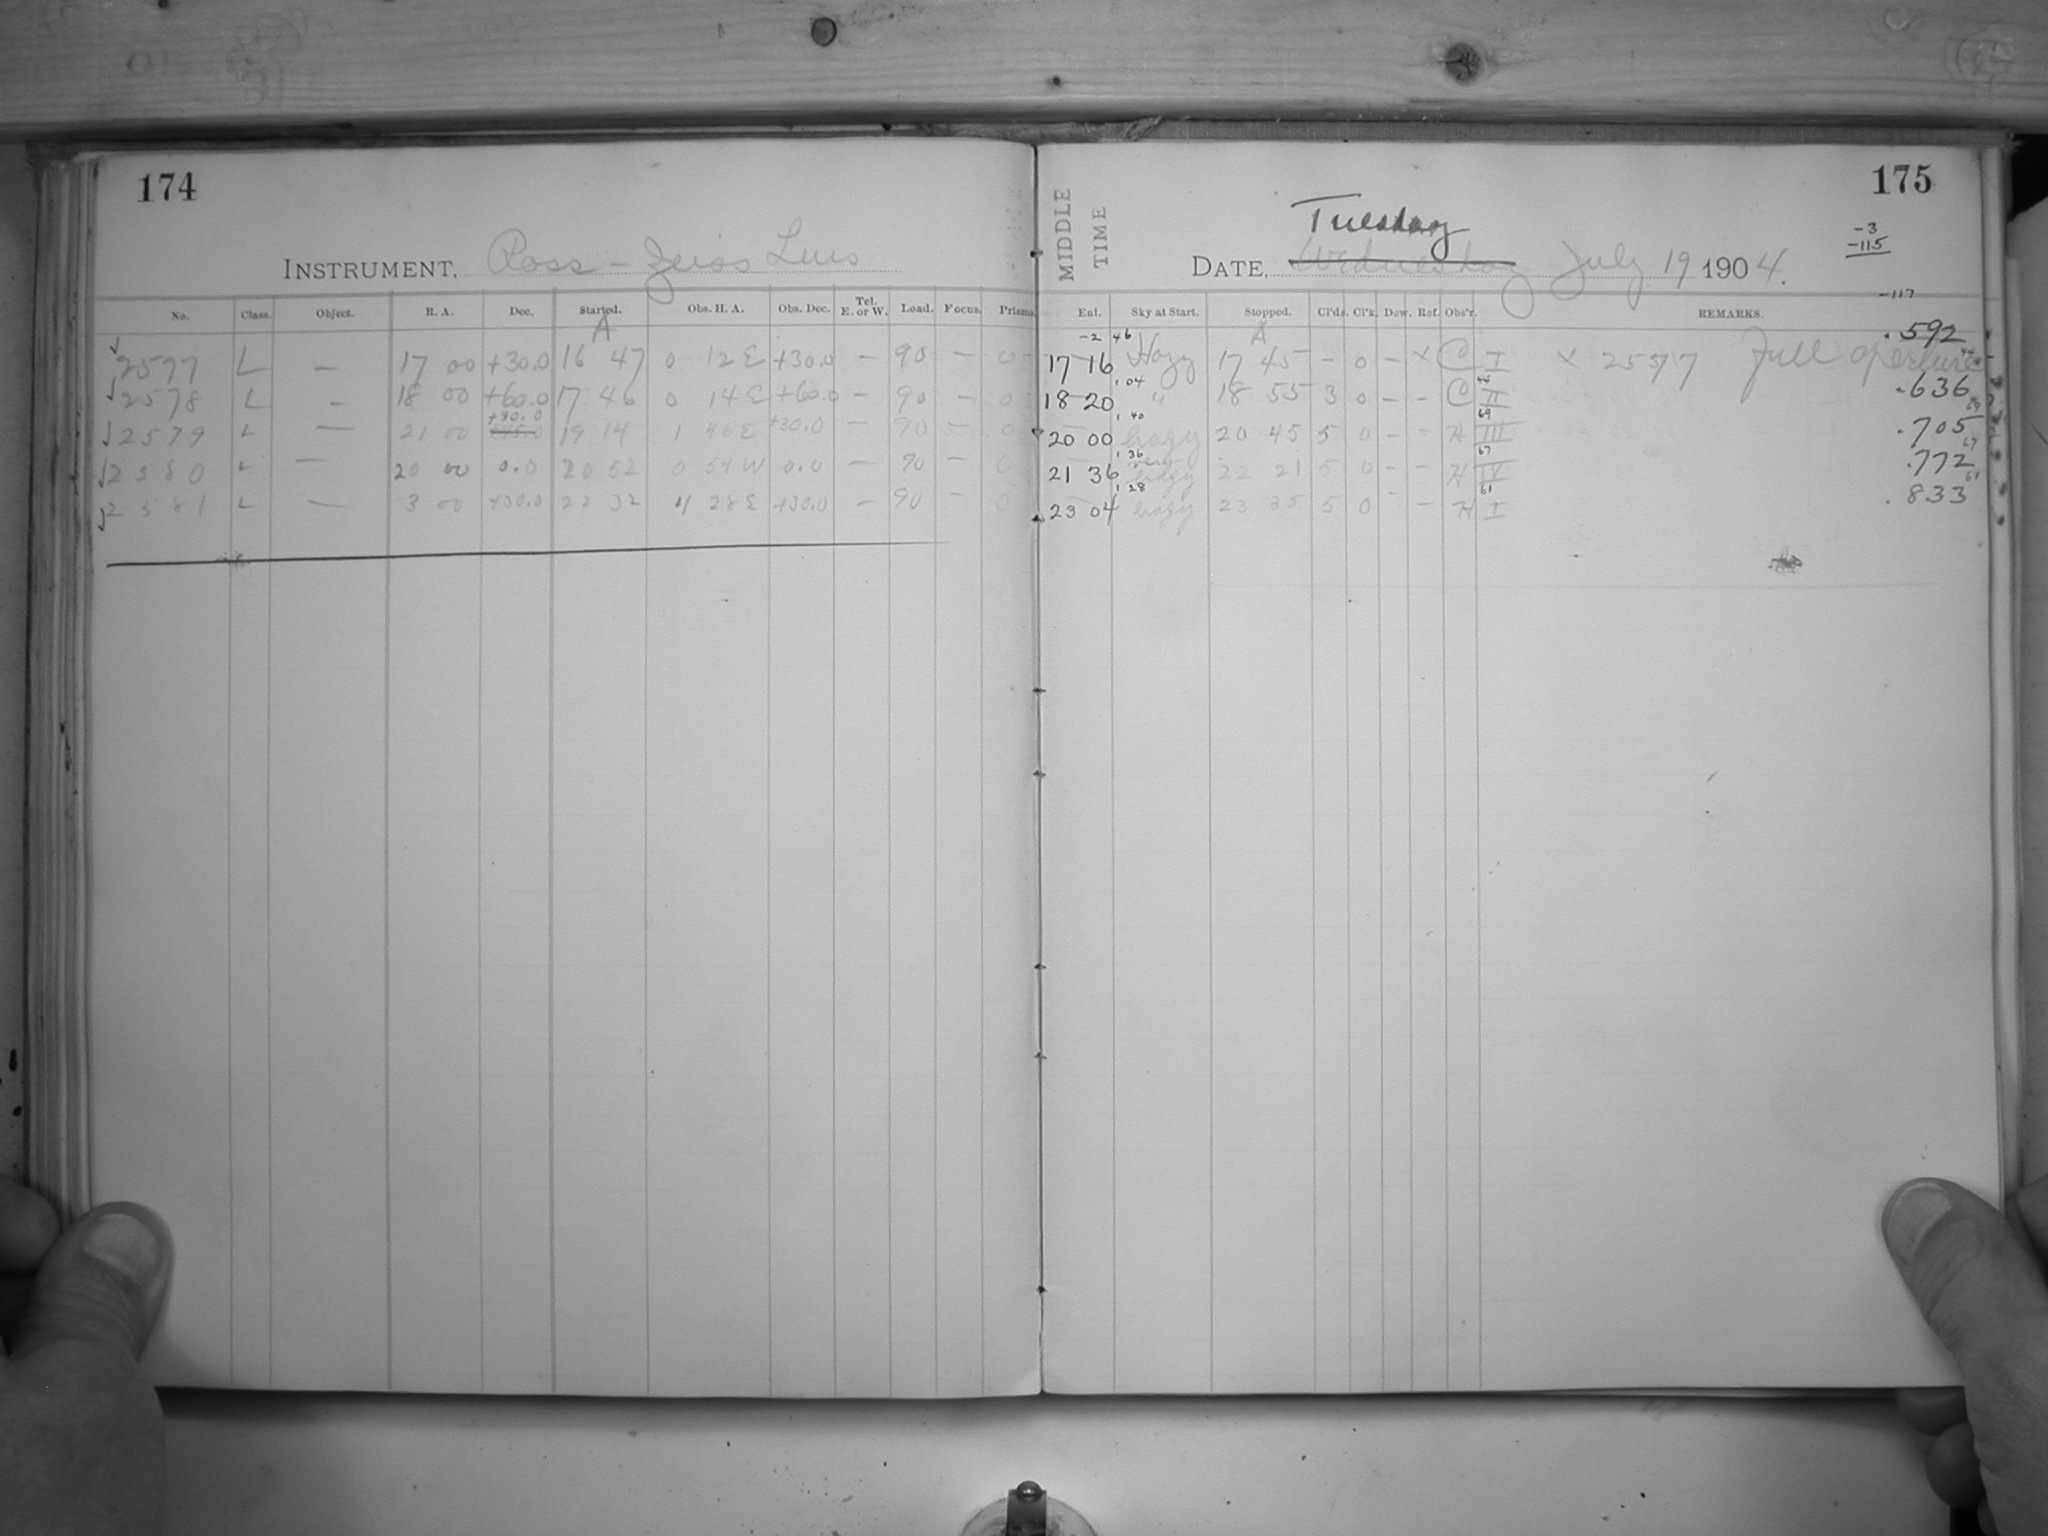 174
INSTRUMENT, Ross-Zeiss Lens
No. Class. Object. R. A. Dec. Started. Obs. H. A. Obs. Dec. Tel. E. or W. Load. Focus. Prisms.
A
2577 L — 17 00 +30.0 16 47 0 12 E +30.0 — 90 — 0
2578 L — 18 00 +60.0 17 46 0 14 E +60.0 — 90 — 0
+30.0
2579 L — 21 00 +45.0 19 14 1 46 E +30.0 — 90 — 0
2580 L — 20 00 0.0 20 52 0 54 W 0.0 — 90 — 0
2581 L — 3 00 +30.0 22 32 4 28 E +30.0 — 90 — 0
MIDDLE TIME
175
Tuesday
DATE, Wednesday July 19 1904.
-3
-115
-117
Enl. Sky at Start. Stopped. Cl'ds. Cl'k. Dew. Ref. Obs'r. REMARKS.
-2 46 A .592
17 16 Hazy 17 45 - 0 - x C I x 2577 Full aperture 44
1 04 44
18 20 " 18 55 3 0 - - C II .636
1 40 69 69
20 00 hazy 20 45 5 0 - - H III .705
1 36 very 67 67
21 36 hazy 22 21 5 0 - - H IV .772
1 28 61 61
23 04 hazy 23 35 5 0 - - H I .833